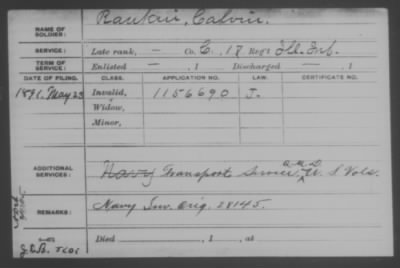 NAME OF SOLDIER: Rankin, Calvin.
SERVICE: Late rank, — Co. C, 17 Reg't Ill. Inf.
TERM OF SERVICE: Enlisted —, 1 Discharged —, 1
DATE OF FILING. CLASS. APPLICATION NO. LAW. CERTIFICATE NO.
May 23 Invalid, 1156690 J.
Widow,
Minor,
ADDITIONAL SERVICES: Navy Transport Service, Q.M.D. U.S. Vols.
REMARKS: Navy Inv. Orig. 28145.
Died , 1 , at